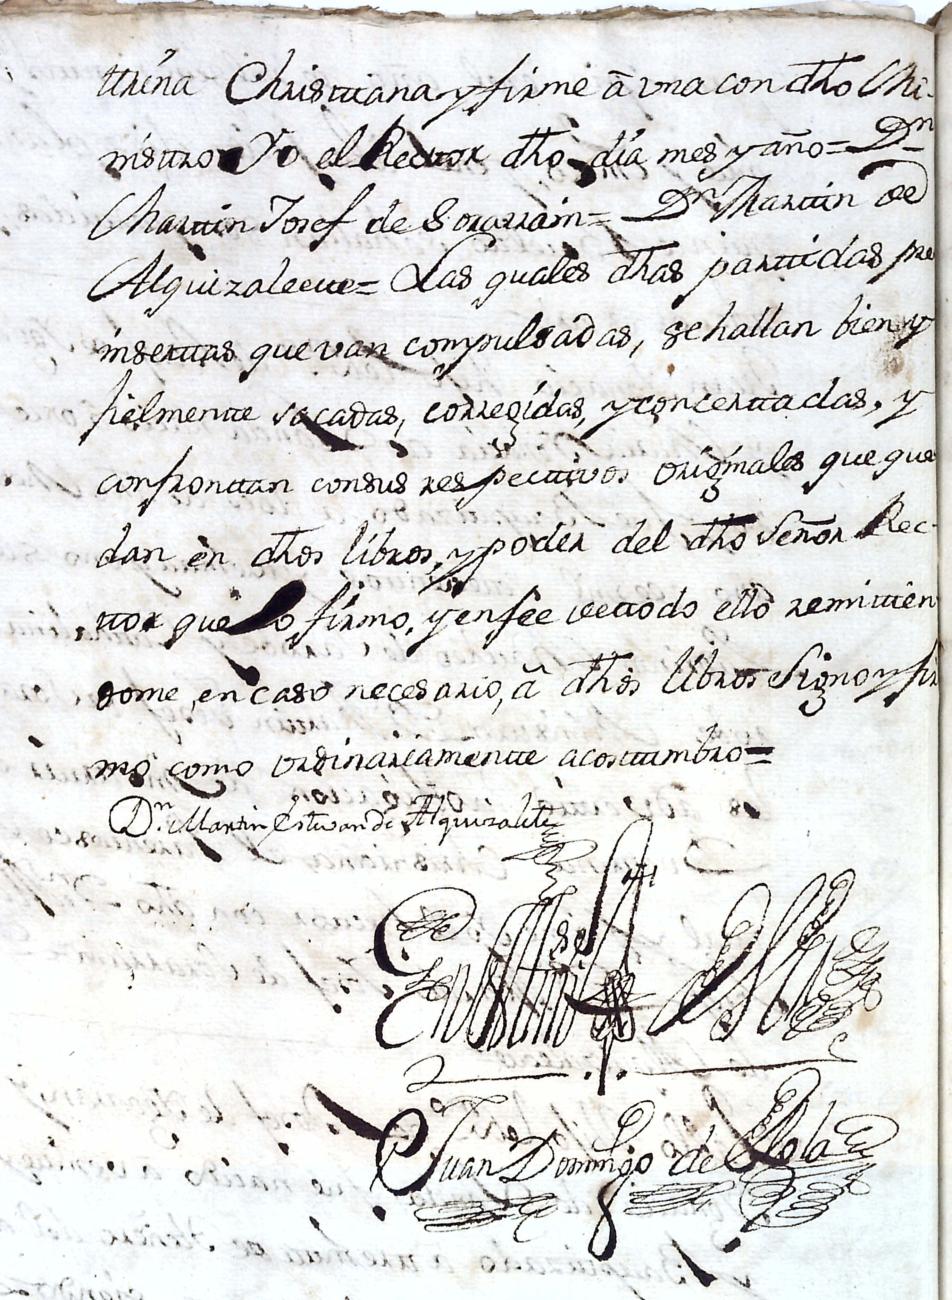 ttrina Christtiana, y firme â una con dho Mi-
nisttro Yo el Recttor dho dia mes y año= Dn
Marttin Josef de Sorarrain= Dn Marttin de
Alquizalette= Las quales dhas parttidas pre
inserttas que van compulsâdas, se hallan bien y
fielmentte sacadas, corregidas, y concerttadas, y
confronttan con sus respecttivos originales que que
dan en dhos libros, y poder del dho Señor Rec-
ttor que lo firmo, y en fee de ttodo ello remitien
dome, en caso necesario, â dhos libros signo y fir
mo como ordinariamentte acosttumbro=
Dn Martin Estevan de Alquizalete
En testimo de Vd
Juan Domingo de Olola